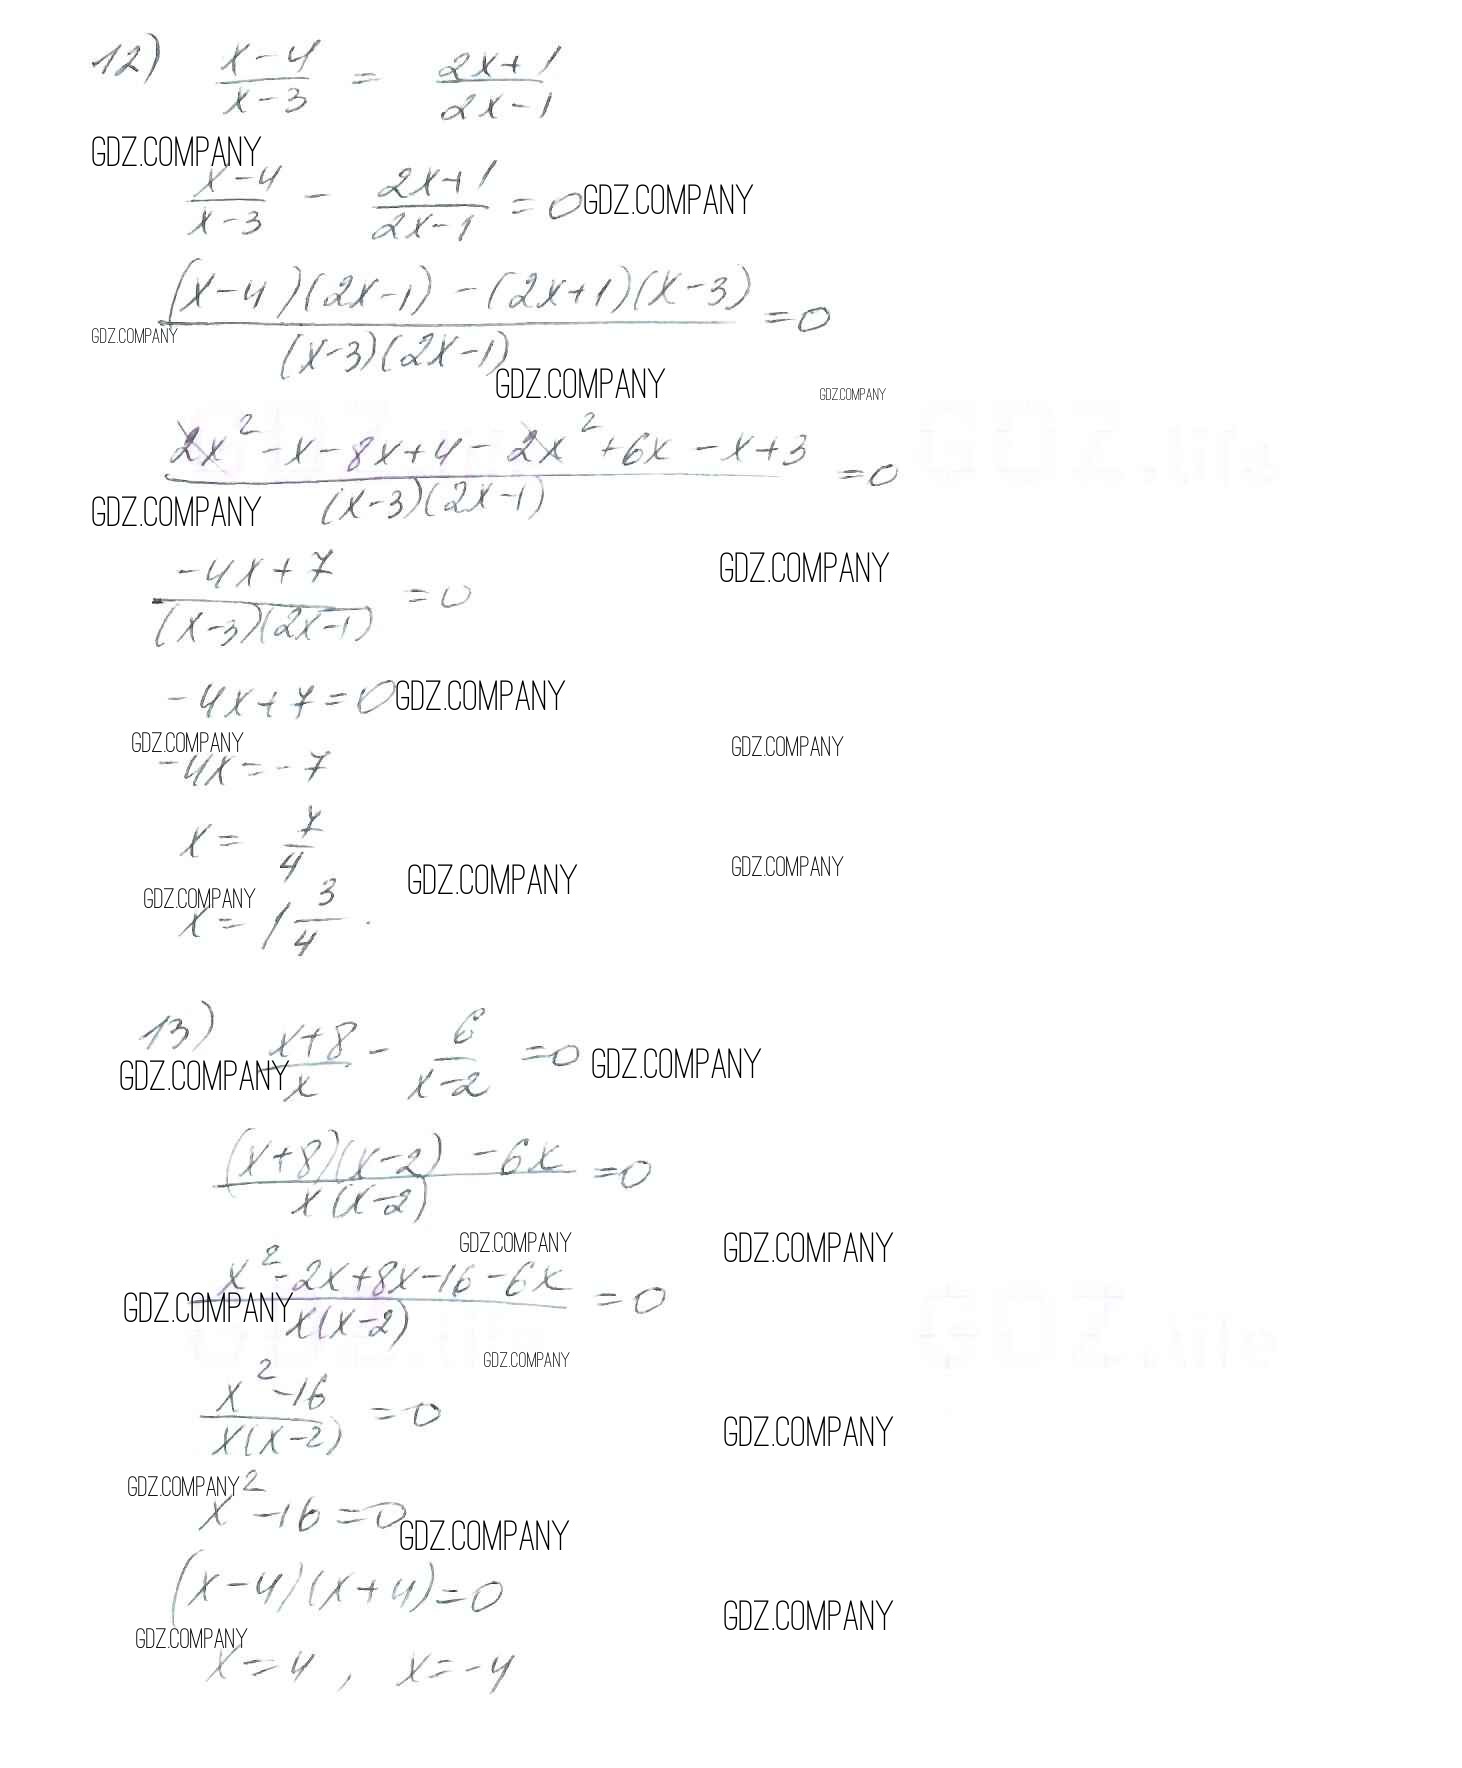 12) (x-4)/(x-3) = (2x+1)/(2x-1)
GDZ.COMPANY
(x-4)/(x-3) - (2x+1)/(2x-1) = 0 GDZ.COMPANY
((x-4)(2x-1) - (2x+1)(x-3))/((x-3)(2x-1)) = 0
GDZ.COMPANY
GDZ.COMPANY
GDZ.COMPANY
GDZ.life
(2x² - x - 8x + 4 - 2x² + 6x - x + 3)/((x-3)(2x-1)) = 0
GDZ.COMPANY
GDZ.COMPANY
(-4x + 7)/((x-3)(2x-1)) = 0
-4x + 7 = 0 GDZ.COMPANY
GDZ.COMPANY GDZ.COMPANY
-4x = -7
x = 7/4
GDZ.COMPANY GDZ.COMPANY
GDZ.COMPANY
x = 1 3/4.
13) (x+8)/x - 6/(x-2) = 0 GDZ.COMPANY
GDZ.COMPANY
((x+8)(x-2) - 6x)/(x(x-2)) = 0
GDZ.COMPANY GDZ.COMPANY
(x² - 2x + 8x - 16 - 6x)/(x(x-2)) = 0
GDZ.COMPANY
GDZ.life GDZ.life
GDZ.COMPANY
(x² - 16)/(x(x-2)) = 0
GDZ.COMPANY
GDZ.COMPANY
x² - 16 = 0 GDZ.COMPANY
(x-4)(x+4) = 0
GDZ.COMPANY
GDZ.COMPANY
x = 4, x = -4